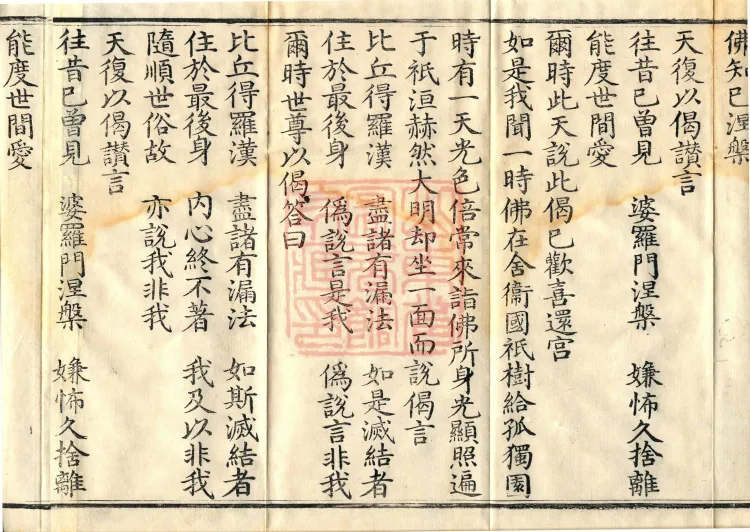 佛知已涅槃
天復以偈讃言
往昔已曾見　婆羅門涅槃　嫌怖久捨離
能度世間愛
爾時此天說此偈已歡喜還宮
如是我聞一時佛在舍衞國祇樹給孤獨園
時有一天光色倍常來詣佛所身光顯照遍
于祇洹赫然大明却坐一面而說偈言
比丘得羅漢　盡諸有漏法　如是滅結者
住於最後身　爲說言是我　爲說言非我
爾時世尊以偈答曰
比丘得羅漢　盡諸有漏法　如斯滅結者
住於最後身　内心終不著　我及以非我
隨順世俗故　亦說我非我
天復以偈讃言
往昔已曾見　婆羅門涅槃　嫌怖久捨離
能度世間愛